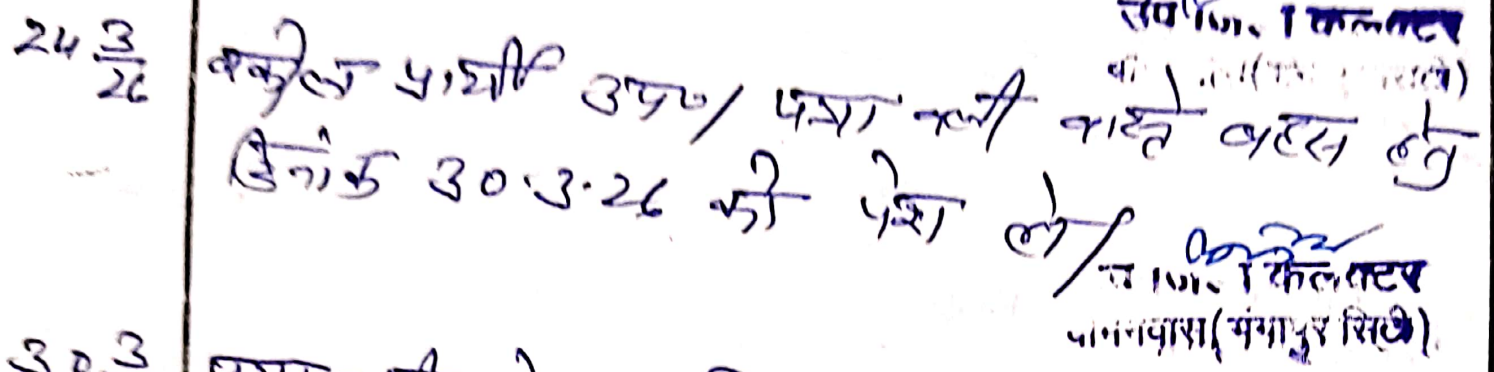 कलक्टर
24 3/26 वकील प्रार्थी उप०/ पत्रावली वास्ते बहस हेतु
दिनांक 30.3.26 को पेश हो/
कलक्टर
(गंगापुर सिटी)
30 3